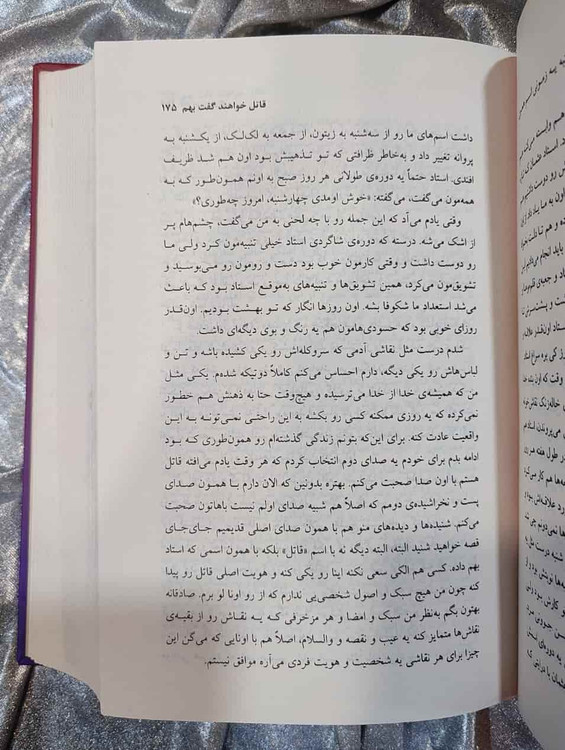 قاتل خواهند گفت بهم ۱۷۵
داشت اسم‌های ما رو از سه‌شنبه به زیتون، از جمعه به لک‌لک، از یکشنبه به
پروانه تغییر داد و به‌خاطر ظرافتی که تو تذهیبش بود اون هم شد ظریف
افندی. استاد حتماً یه دوره‌ی طولانی هر روز صبح به اونم همون‌طور که به
همه‌مون می‌گفت، می‌گفته: «خوش اومدی چهارشنبه، امروز چه‌طوری؟»
وقتی یادم می‌آد که این جمله رو با چه لحنی به من می‌گفت، چشم‌هام پر
از اشک می‌شه. درسته که دوره‌ی شاگردی استاد خیلی تنبیه‌مون کرد ولی ما
رو دوست داشت و وقتی کارمون خوب بود دست و رومون رو می‌بوسید و
تشویق‌مون می‌کرد، همین تشویق‌ها و تنبیه‌های به‌موقع استاد بود که باعث
می‌شد استعداد ما شکوفا بشه. اون روزها انگار که تو بهشت بودیم. اون‌قدر
روزای خوبی بود که حسودی‌هامون هم یه رنگ و بوی دیگه‌ای داشت.
شدم درست مثل نقاشی آدمی که سروکله‌اش رو یکی کشیده باشه و تن و
لباس‌هاش رو یکی دیگه، دارم احساس می‌کنم کاملاً دوتیکه شده‌م. یکی مثل
من که همیشه‌ی خدا از خدا می‌ترسیده و هیچ‌وقت حتا به ذهنش هم خطور
نمی‌کرده که یه روزی ممکنه کسی رو بکشه به این راحتی نمی‌تونه به این
واقعیت عادت کنه. برای این‌که بتونم زندگی گذشته‌ام رو همون‌طوری که بود
ادامه بدم برای خودم یه صدای دوم انتخاب کردم که هر وقت یادم می‌افته قاتل
هستم با اون صدا صحبت می‌کنم. بهتره بدونین که الان دارم با همون صدای
پست و نخراشیده‌ی دومم که اصلاً هم شبیه صدای اولم نیست باهاتون صحبت
می‌کنم. شنیده‌ها و دیده‌های منو هم با همون صدای اصلی قدیمیم جای‌جای
قصه خواهید شنید البته، البته دیگه نه با اسم «قاتل» بلکه با همون اسمی که استاد
بهم داده. کسی هم الکی سعی نکنه اینا رو یکی کنه و هویت اصلی قاتل رو پیدا
کنه چون من هیچ سبک و اصول شخصی‌یی ندارم که از رو اونا لو برم. صادقانه
بهتون بگم به‌نظر من سبک و امضا و هر مزخرفی که یه نقاش رو از بقیه‌ی
نقاش‌ها متمایز کنه یه عیب و نقصه و والسلام، اصلاً هم با اونایی که می‌گن این
چیزا برای هر نقاشی یه شخصیت و هویت فردی می‌آره موافق نیستم.